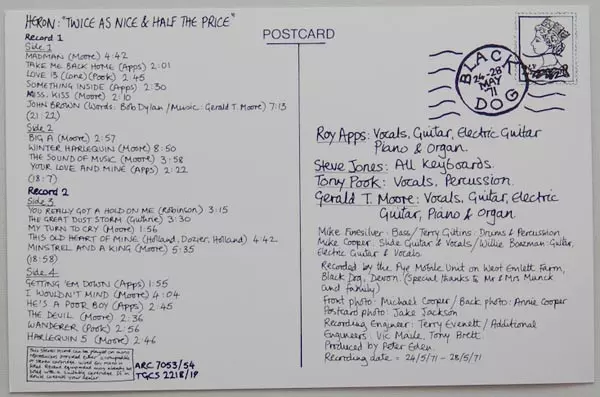 HERON: "TWICE AS NICE & HALF THE PRICE"
Record 1
Side 1
MADMAN (Moore) 4:42
TAKE ME BACK HOME (Apps) 2:01
LOVE 13 (Lone) (Pook) 2:45
SOMETHING INSIDE (Apps) 2:30
MISS. KISS (Moore) 2:10
JOHN BROWN (Words: Bob Dylan / Music: Gerald T. Moore) 7:13
(21:22)
Side 2
BIG A (Moore) 2:57
WINTER HARLEQUIN (Moore) 8:50
THE SOUND OF MUSIC (Moore) 3:58
YOUR LOVE AND MINE (Apps) 2:22
(18:7)
Record 2
Side 3
YOU REALLY GOT A HOLD ON ME (Robinson) 3:15
THE GREAT DUST STORM (Guthrie) 3:30
MY TURN TO CRY (Moore) 1:56
THIS OLD HEART OF MINE (Holland, Dozier, Holland) 4:42
MINSTREL AND A KING (Moore) 5:35
(18:58)
Side 4
GETTING 'EM DOWN (Apps) 1:55
I WOULDN'T MIND (Moore) 4:04
HE'S A POOR BOY (Apps) 2:45
THE DEVIL (Moore) 2:36
WANDERER (Pook) 2:56
HARLEQUIN 5 (Moore) 2:46
This stereo record can be played on mono
ARC 7053/54
TGCS 2218/1P
POSTCARD
BLACK DOG
24-28
MAY
71
Roy Apps: Vocals, Guitar, Electric Guitar
Piano & Organ.
Steve Jones: All Keyboards.
Tony Pook: Vocals, Percussion.
Gerald T. Moore: Vocals, Guitar, Electric
Guitar, Piano & Organ
Mike Finesilver: Bass / Terry Gittins: Drums & Percussion
Mike Cooper: Slide Guitar & Vocals / Willie Boazman: Guitar,
Electric Guitar & Vocals.
Recorded by the Pye Mobile Unit on West Emlett Farm,
Black Dog, Devon. (Special thanks to Mr & Mrs Munck
and family)
Front photo: Michael Cooper / Back photo: Annie Cooper
Postcard photo: Jake Jackson
Recording Engineer: Terry Evenett / Additional
Engineers: Vic Maile, Tony Brett.
Produced by Peter Eden.
Recording date = 24/5/71 - 28/5/71